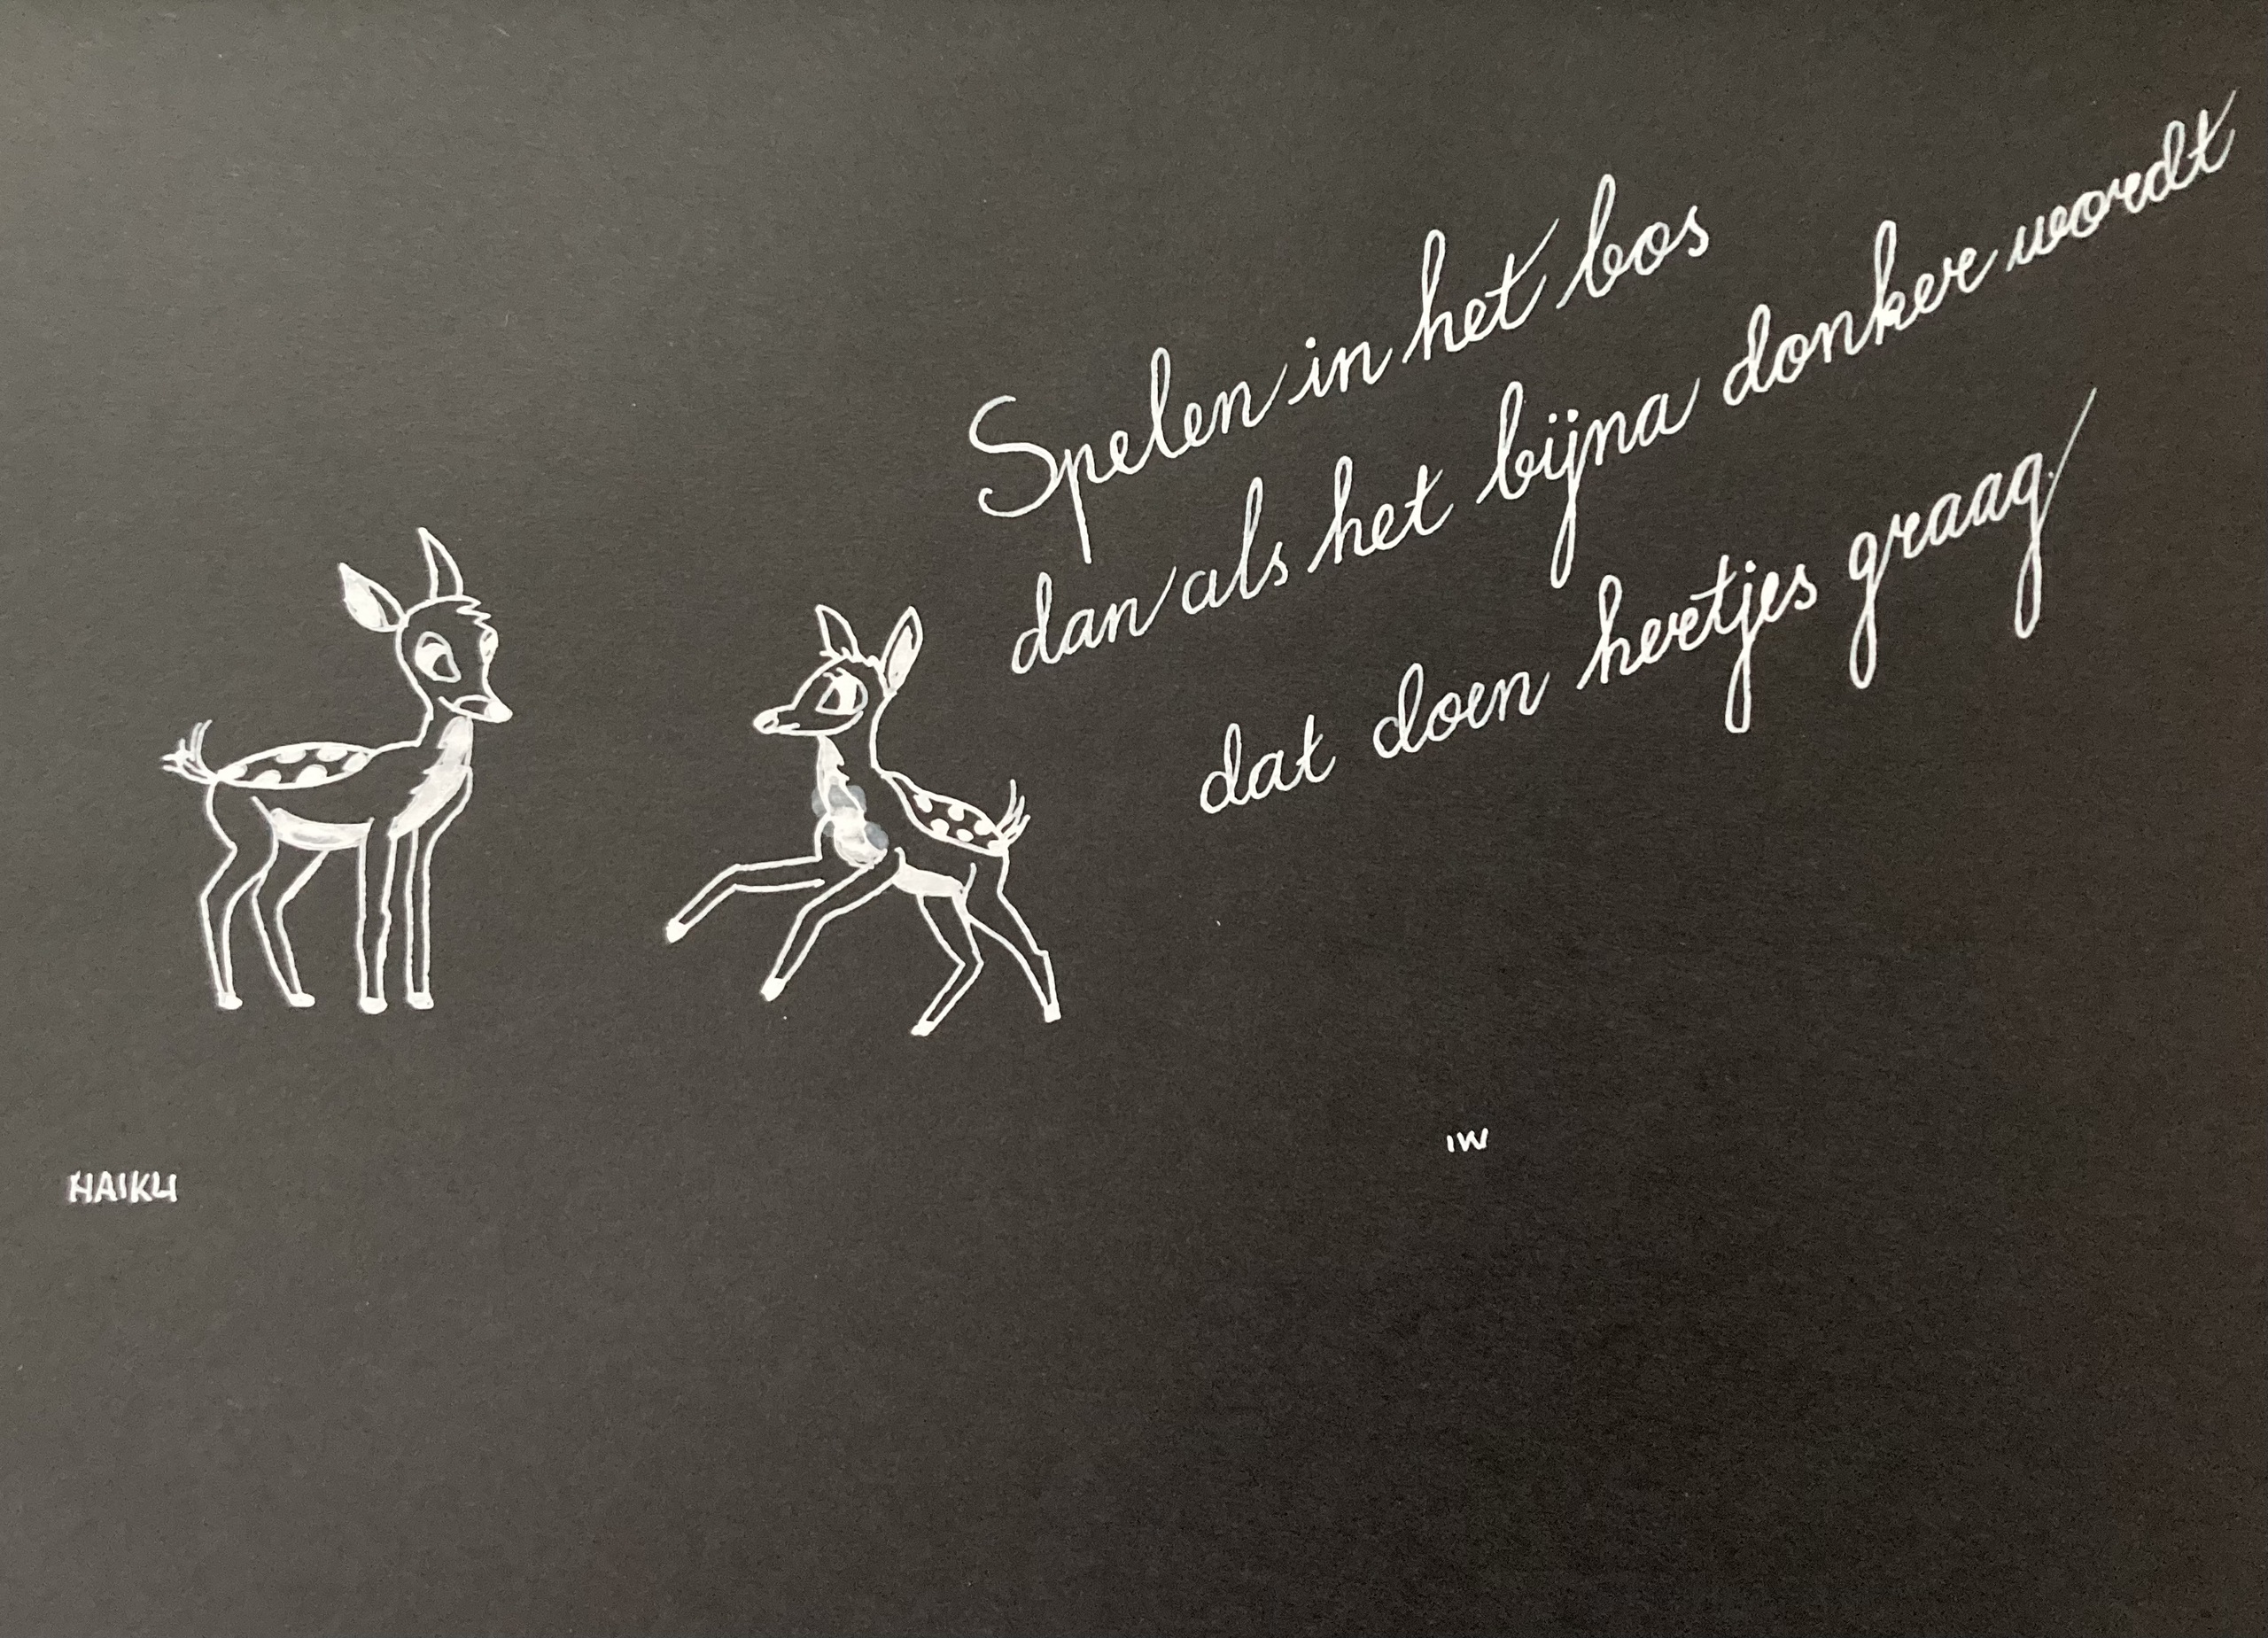 Spelen in het bos
dan als het bijna donker wordt
dat doen hertjes graag
IW
HAIKU